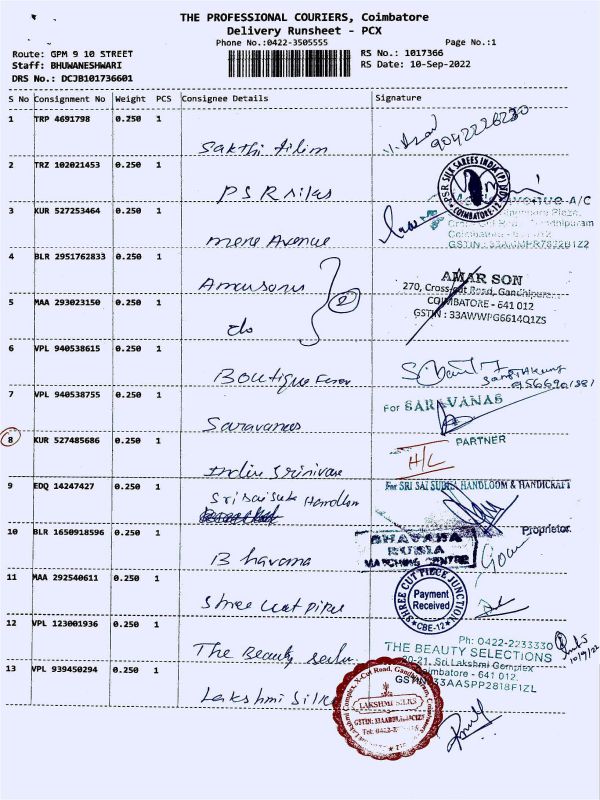 THE PROFESSIONAL COURIERS, Coimbatore
Delivery Runsheet - PCX
Phone No.:0422-3505555 Page No.:1
Route: GPM 9 10 STREET RS No.: 1017366
Staff: BHUWANESHWARI RS Date: 10-Sep-2022
DRS No.: DCJB101736601
S No Consignment No Weight PCS Consignee Details Signature
1 TRP 4691798 0.250 1
Sakthi film 9042226230
2 TRZ 102021453 0.250 1
PSR silks PSR SILK SAREES INDIA (P) COIMBATORE-12
3 KUR 527253464 0.250 1
mene Avenue AVENUE A/C
Coimbatore
4 BLR 2951762833 0.250 1
Amarsons AMAR SON
270, Cross-cut Road, Gandhipuram
COIMBATORE - 641 012
GSTIN : 33AWWPG6614Q1ZS
5 MAA 293023150 0.250 1
do 2
6 VPL 940538615 0.250 1
Boutique
7 VPL 940538755 0.250 1
Saravanas For SARAVANAS
PARTNER
8 KUR 527485686 0.250 1
India Srinivas H/L
9 EDQ 14247427 0.250 1
Sri Sai Suba Handloom For SRI SAI SUBHA HANDLOOM & HANDICRAFT
Proprietor
10 BLR 1650918596 0.250 1
Bhavana BHAVANA
RUBIA
MATCHING CENTRE
11 MAA 292540611 0.250 1
Shree cut piece SHREE CUT PIECE JUNCTION
Payment
Received
CBE-12
12 VPL 123001936 0.250 1
The Beauty Ph: 0422-2233330
THE BEAUTY SELECTIONS
20-21, Sri Lakshmi Complex
Coimbatore - 641 012.
GSTIN 33AASPP2818F1ZL
10/9/22
13 VPL 939450294 0.250 1
Lakshmi Silks LAKSHMI SILKS